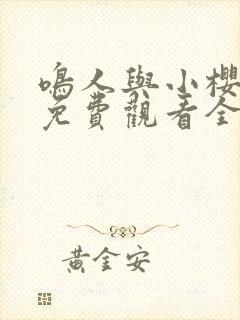 鳴人與小櫻
免費觀看全
黃金安